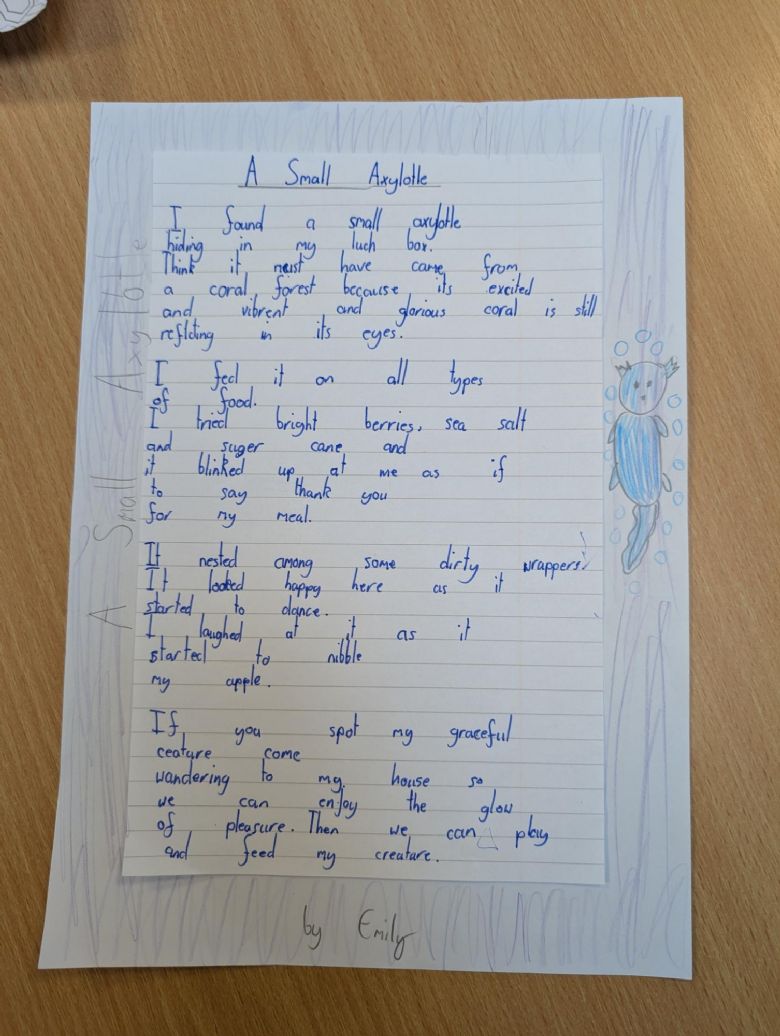 A Small Axylotle
I found a small axylotle
hiding in my luch box.
Think it must have came from
a coral forest because its excited
and vibrent and glorious coral is still
reflding in its eyes.
I feed it on all types
of food.
I tried bright berries, sea salt
and suger cane and
it blinked up at me as if
to say thank you
for my meal.
It nested among some dirty wrappers.
It looked happy here as it
started to dance.
I laughed at it as it
started to nibble
my apple.
If you spot my graceful
ceature come
wandering to my house so
we can enjoy the glow
of pleasure. Then we can play
and feed my creature.
A Small Axylotle
by Emily